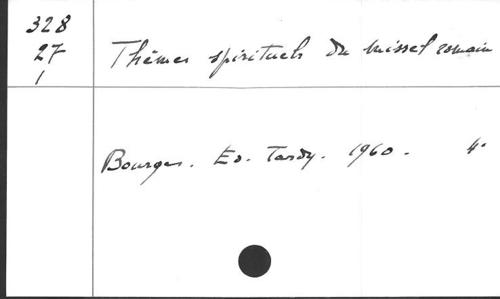 328
27
1
Thèmes spirituels du missel romain
Bourges. Ed. Tardy. 1960. 4°